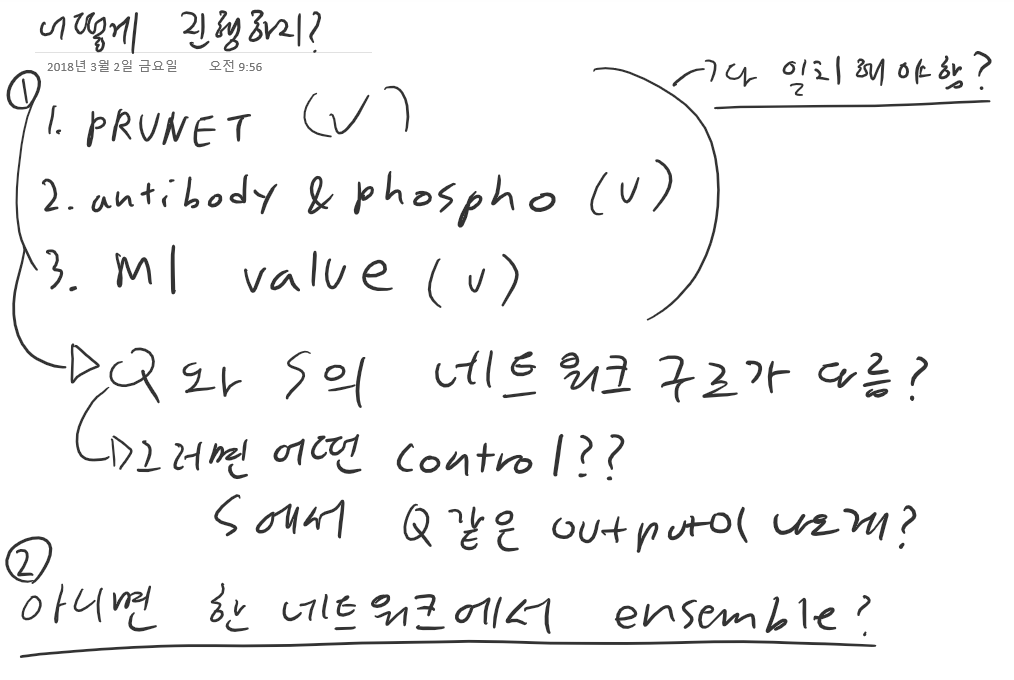 어떻게 진행하지?
2018년 3월 2일 금요일 오전 9:56
① 1. PRUNET (V)
다 일치해야함?
2. antibody & phospho (v)
3. MI value (v)
Q와 S의 네트워크 구조가 다름?
그러면 어떤 control??
S에서 Q같은 output이 나오게?
②
아니면 한 네트워크에서 ensemble?